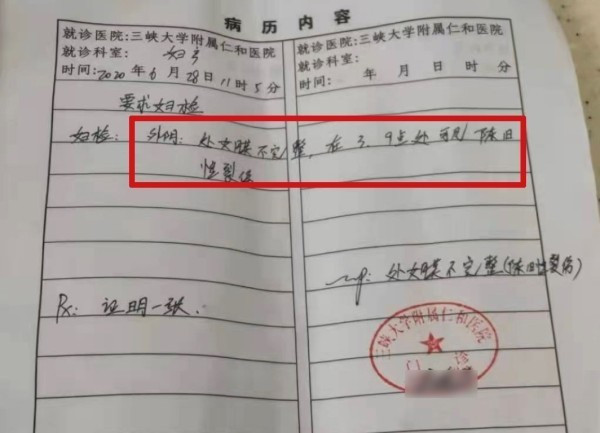 病历内容
就诊医院:三峡大学附属仁和医院
就诊科室: 妇了
时间:2020年6月28日11时5分
要求妇检
妇检: 外阴: 处女膜不完整, 在3、9点处可见陈旧
性裂伤
Rx: 证明一张.
就诊医院:三峡大学附属仁和医院
就诊科室:
时间: 年 月 日 时 分
imp: 处女膜不完整(陈旧性裂伤)
三峡大学附属仁和医院
门诊